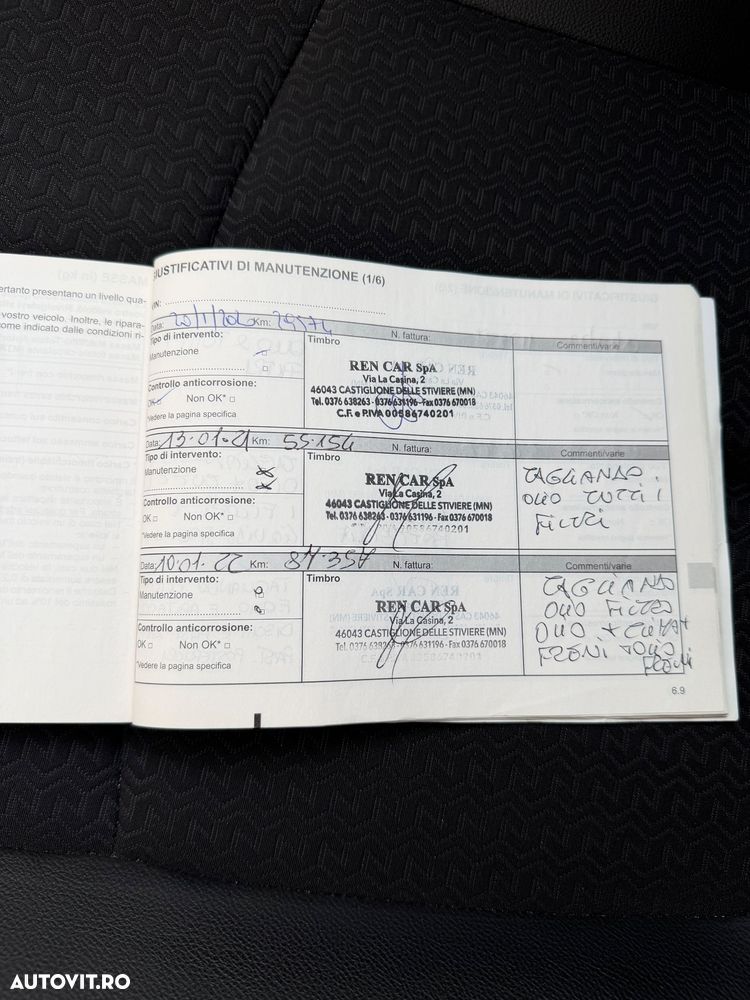 ertanto presentano un livello qua-
vostro veicolo. Inoltre, le ripara-
ome indicato dalle condizioni ri-
IUSTIFICATIVI DI MANUTENZIONE (1/6)
IN:
Data: Km: N. fattura: Commenti/varie
Tipo di intervento:
Manutenzione
Controllo anticorrosione:
OK Non OK*
*Vedere la pagina specifica
Timbro
REN CAR SpA
Via La Casina, 2
46043 CASTIGLIONE DELLE STIVIERE (MN)
Tel. 0376 638263 - 0376 631196 - Fax 0376 670018
C.F. e P.IVA 00586740201
Data: 13-01-21 Km: 55.154 N. fattura: Commenti/varie
Tipo di intervento:
Manutenzione
Controllo anticorrosione:
OK Non OK*
*Vedere la pagina specifica
Timbro
REN CAR SpA
Via La Casina, 2
46043 CASTIGLIONE DELLE STIVIERE (MN)
Tel. 0376 638263 - 0376 631196 - Fax 0376 670018
TAGLIANDO.
OLIO TUTTI I
FILTRI
Data: 10.01.22 Km: N. fattura: Commenti/varie
Tipo di intervento:
Manutenzione
Controllo anticorrosione:
OK Non OK*
*Vedere la pagina specifica
Timbro
REN CAR SpA
Via La Casina, 2
46043 CASTIGLIONE DELLE STIVIERE (MN)
Tel. 0376 638263 - 0376 631196 - Fax 0376 670018
TAGLIANDO
OLIO FILTRO
OLIO
FRENI + OLIO
FRENI
6.9
AUTOVIT.RO